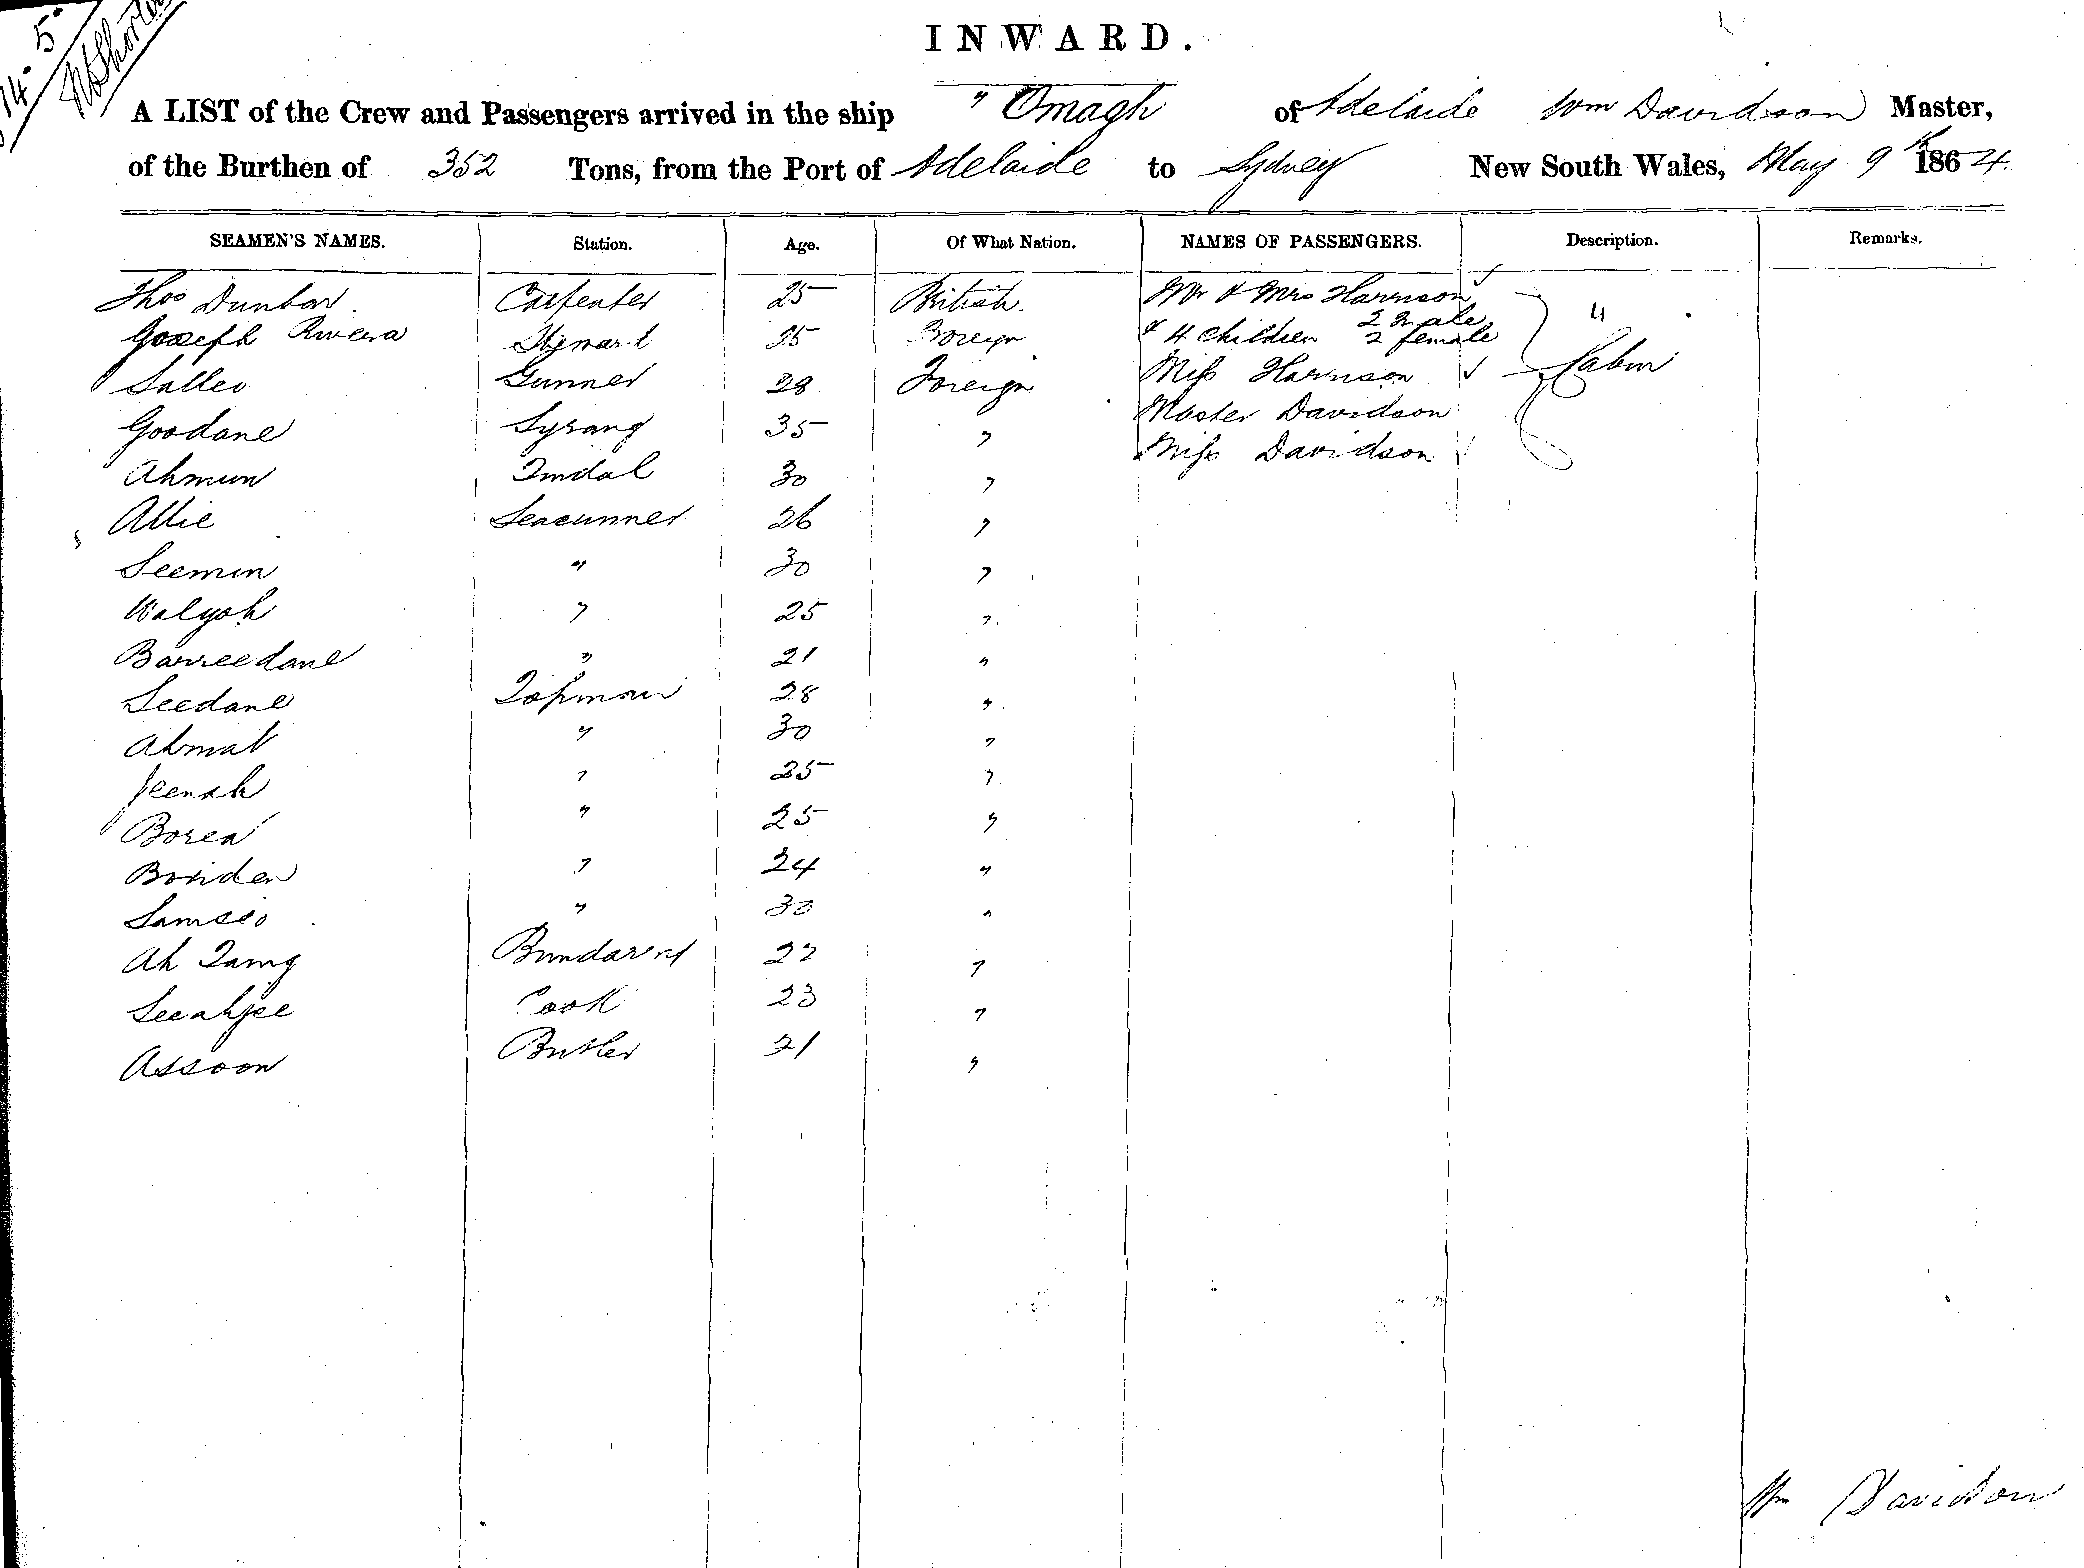 14. 5.
INWARD.
A LIST of the Crew and Passengers arrived in the ship " Omagh of Adelaide Wm Davidson Master,
of the Burthen of 352 Tons, from the Port of Adelaide to Sydney New South Wales, May 9th 1864.
SEAMEN'S NAMES. Station. Age. Of What Nation. NAMES OF PASSENGERS. Description. Remarks.
Thos Dunbar Carpenter 25 British Mr & Mrs Harrison "
Joseph Rivera Steward 25 Foreign & 4 children 2 male 2 female
Salleo Gunner 28 Foreign Miss Harrison Cabin
Goodane Syrang 35 " Master Davidson
Ahmun Tindal 30 " Miss Davidson
Allie Seacunner 26 "
Seemin " 30 "
Walyoh " 25 "
Barreedane " 21 "
Seedane Topman 28 "
Ahmat " 30 "
Jeenah " 25 "
Borea " 25 "
Boriden " 24 "
Samsio " 30 "
Ah Tamg 22 "
Seeahjee Cook 23 "
Assoon Butler 21 "
Wm Davidson